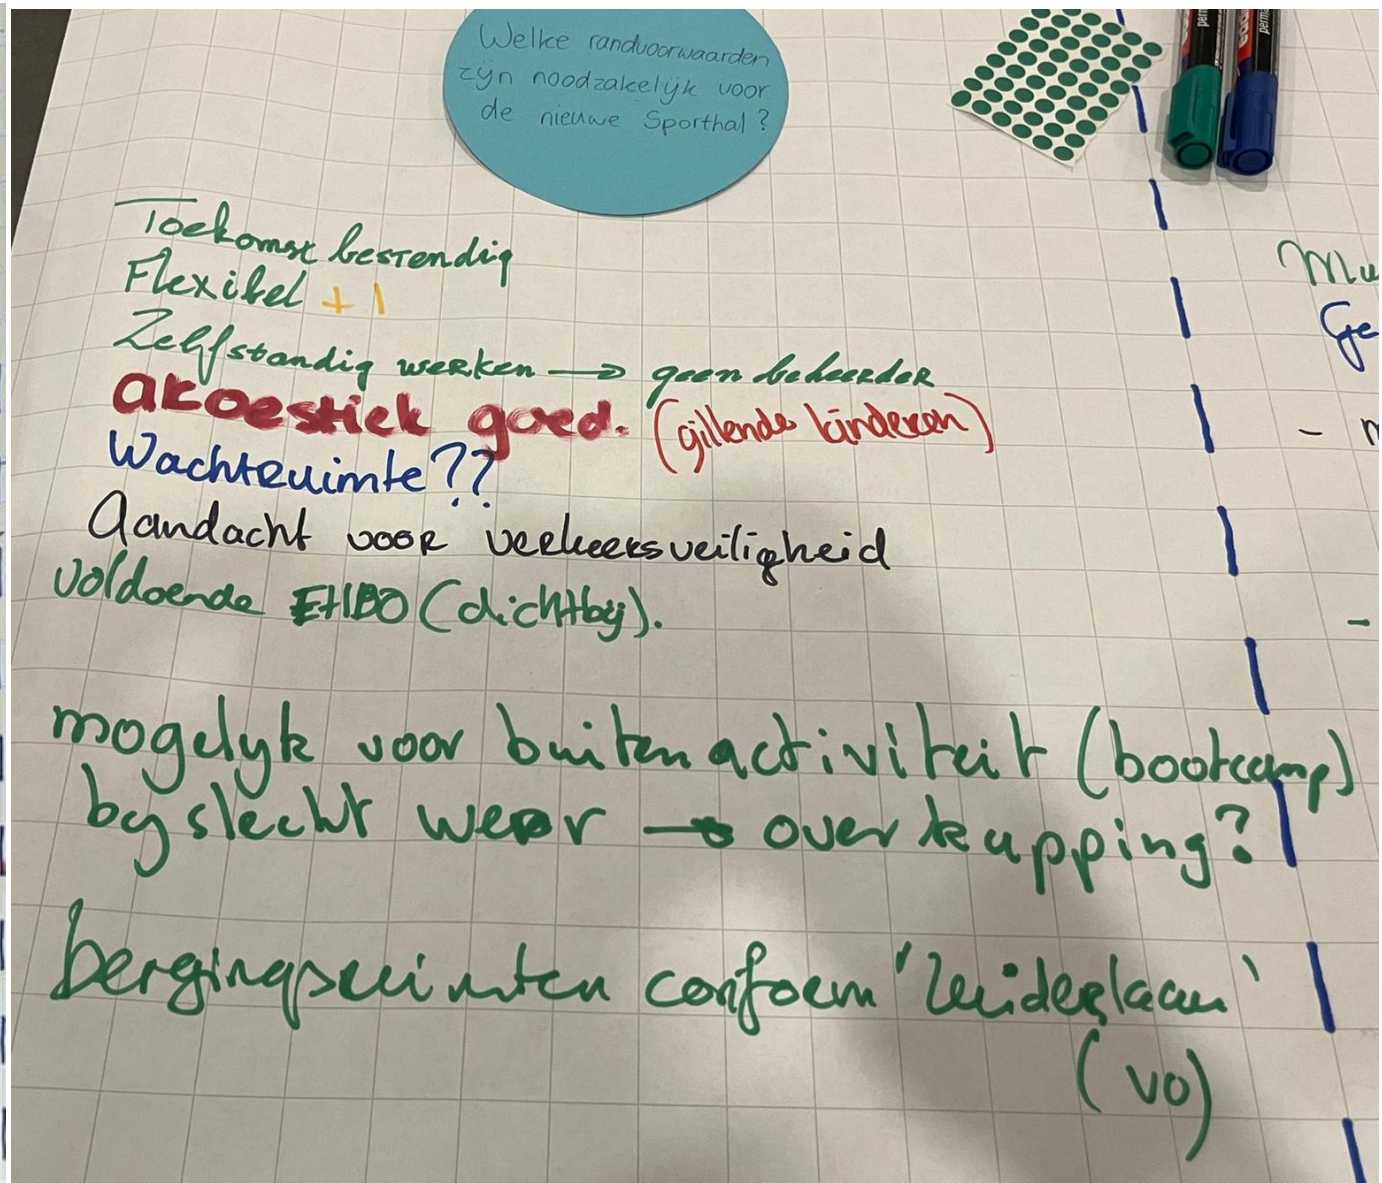 Welke randvoorwaarden
zijn noodzakelijk voor
de nieuwe Sporthal?
Toekomst bestendig
Flexibel +1
Zelfstandig werken → geen beheerder
akoestiek goed. (gillende kinderen)
Wachtruimte??
Aandacht voor verkeersveiligheid
voldoende EHBO (dichtbij).
mogelyk voor buitenactiviteit (bootcamp)
by slecht weer → overkapping?
bergingsruimten conform 'Zuiderlaan'
(VO)
Mu
Ge
- m
-